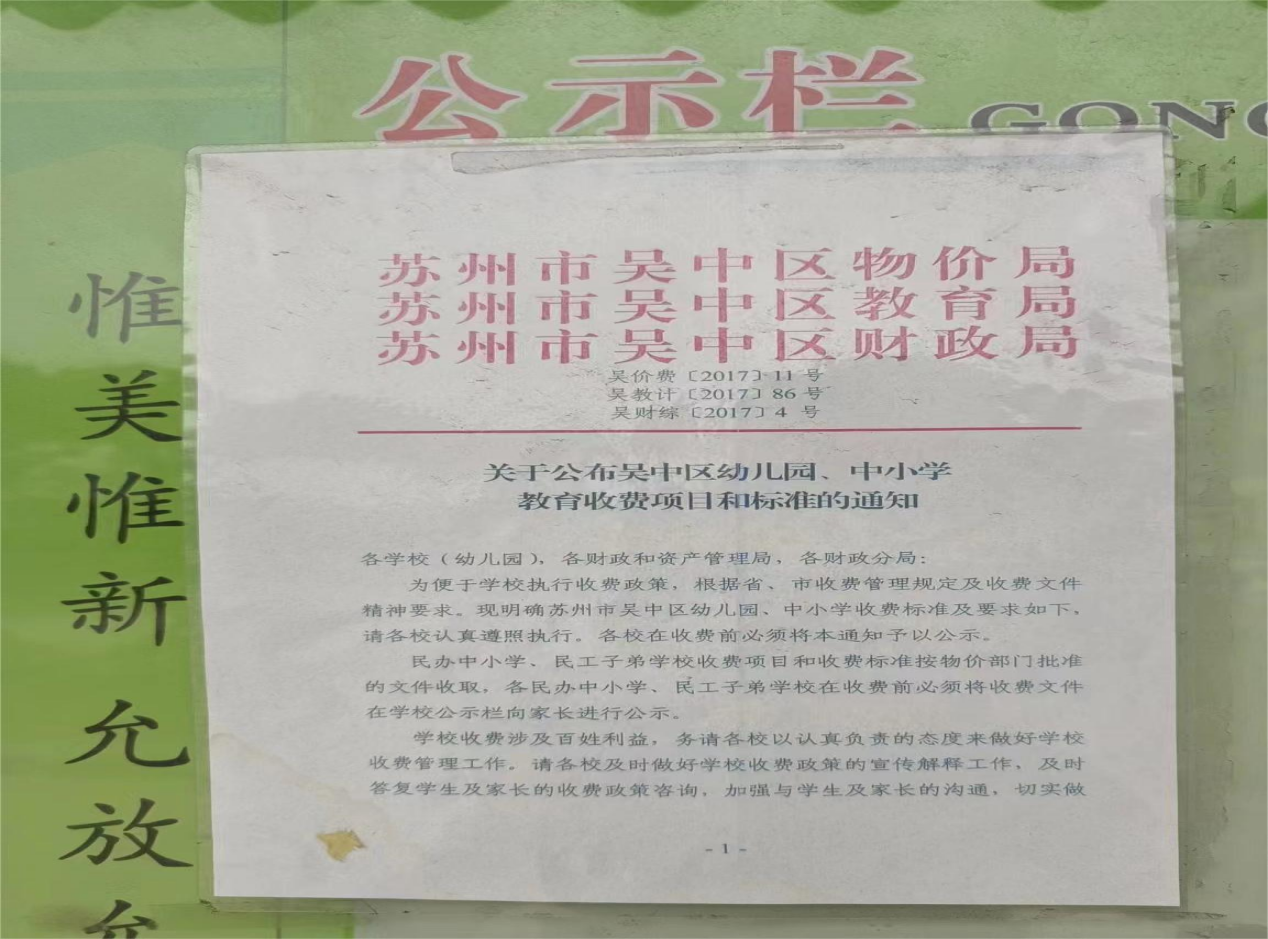 公示栏 GONG
惟美惟新 允放允
苏州市吴中区物价局
苏州市吴中区教育局
苏州市吴中区财政局
吴价费〔2017〕11 号
吴教计〔2017〕86 号
吴财综〔2017〕4 号
关于公布吴中区幼儿园、中小学
教育收费项目和标准的通知
各学校（幼儿园），各财政和资产管理局，各财政分局：
为便于学校执行收费政策，根据省、市收费管理规定及收费文件
精神要求。现明确苏州市吴中区幼儿园、中小学收费标准及要求如下，
请各校认真遵照执行。各校在收费前必须将本通知予以公示。
民办中小学、民工子弟学校收费项目和收费标准按物价部门批准
的文件收取，各民办中小学、民工子弟学校在收费前必须将收费文件
在学校公示栏向家长进行公示。
学校收费涉及百姓利益，务请各校以认真负责的态度来做好学校
收费管理工作。请各校及时做好学校收费政策的宣传解释工作，及时
答复学生及家长的收费政策咨询，加强与学生及家长的沟通，切实做
- 1 -